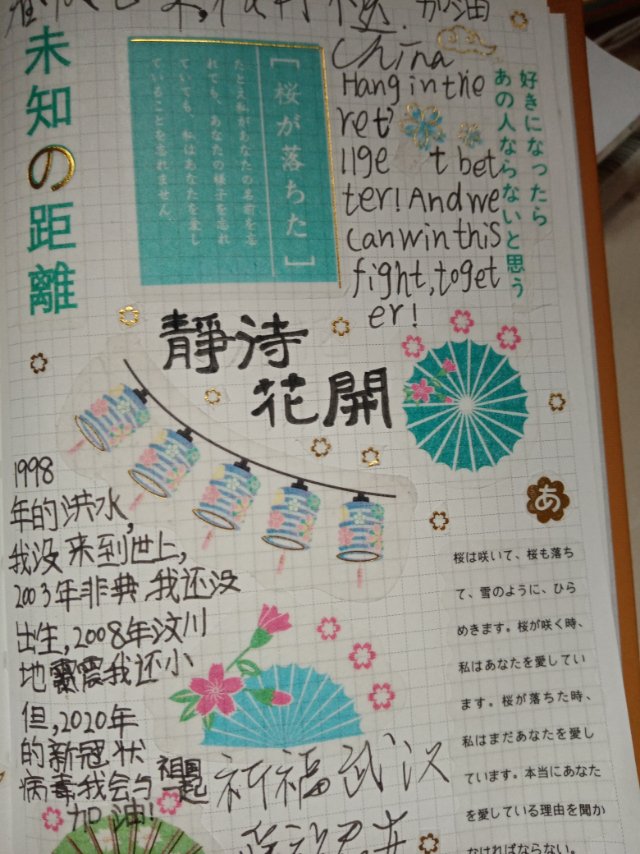 加油
未知の距離
[桜が落ちた]
たとえ私があなたの名前を忘
れても、あなたの様子を忘れ
ていても、私はあなたを愛し
ていることを忘れません。
China
Hang in the
ret
llge t bet
ter! And we
can win this
fight, toget
er!
好きになったら
あの人ならないと思う
靜待
花開
1998
年的洪水,
我没来到世上,
2003年非典,我还没
出生,2008年汶川
地震我还小
但,2020年
的新冠状
病毒我会与祖国一起
加油!
祈福武汉
あ
桜は咲いて、桜も落ち
て、雪のように、ひら
めきます。桜が咲く時、
私はあなたを愛してい
ます。桜が落ちた時、
私はまだあなたを愛し
ています。本当にあなた
を愛している理由を聞か
なければならない。